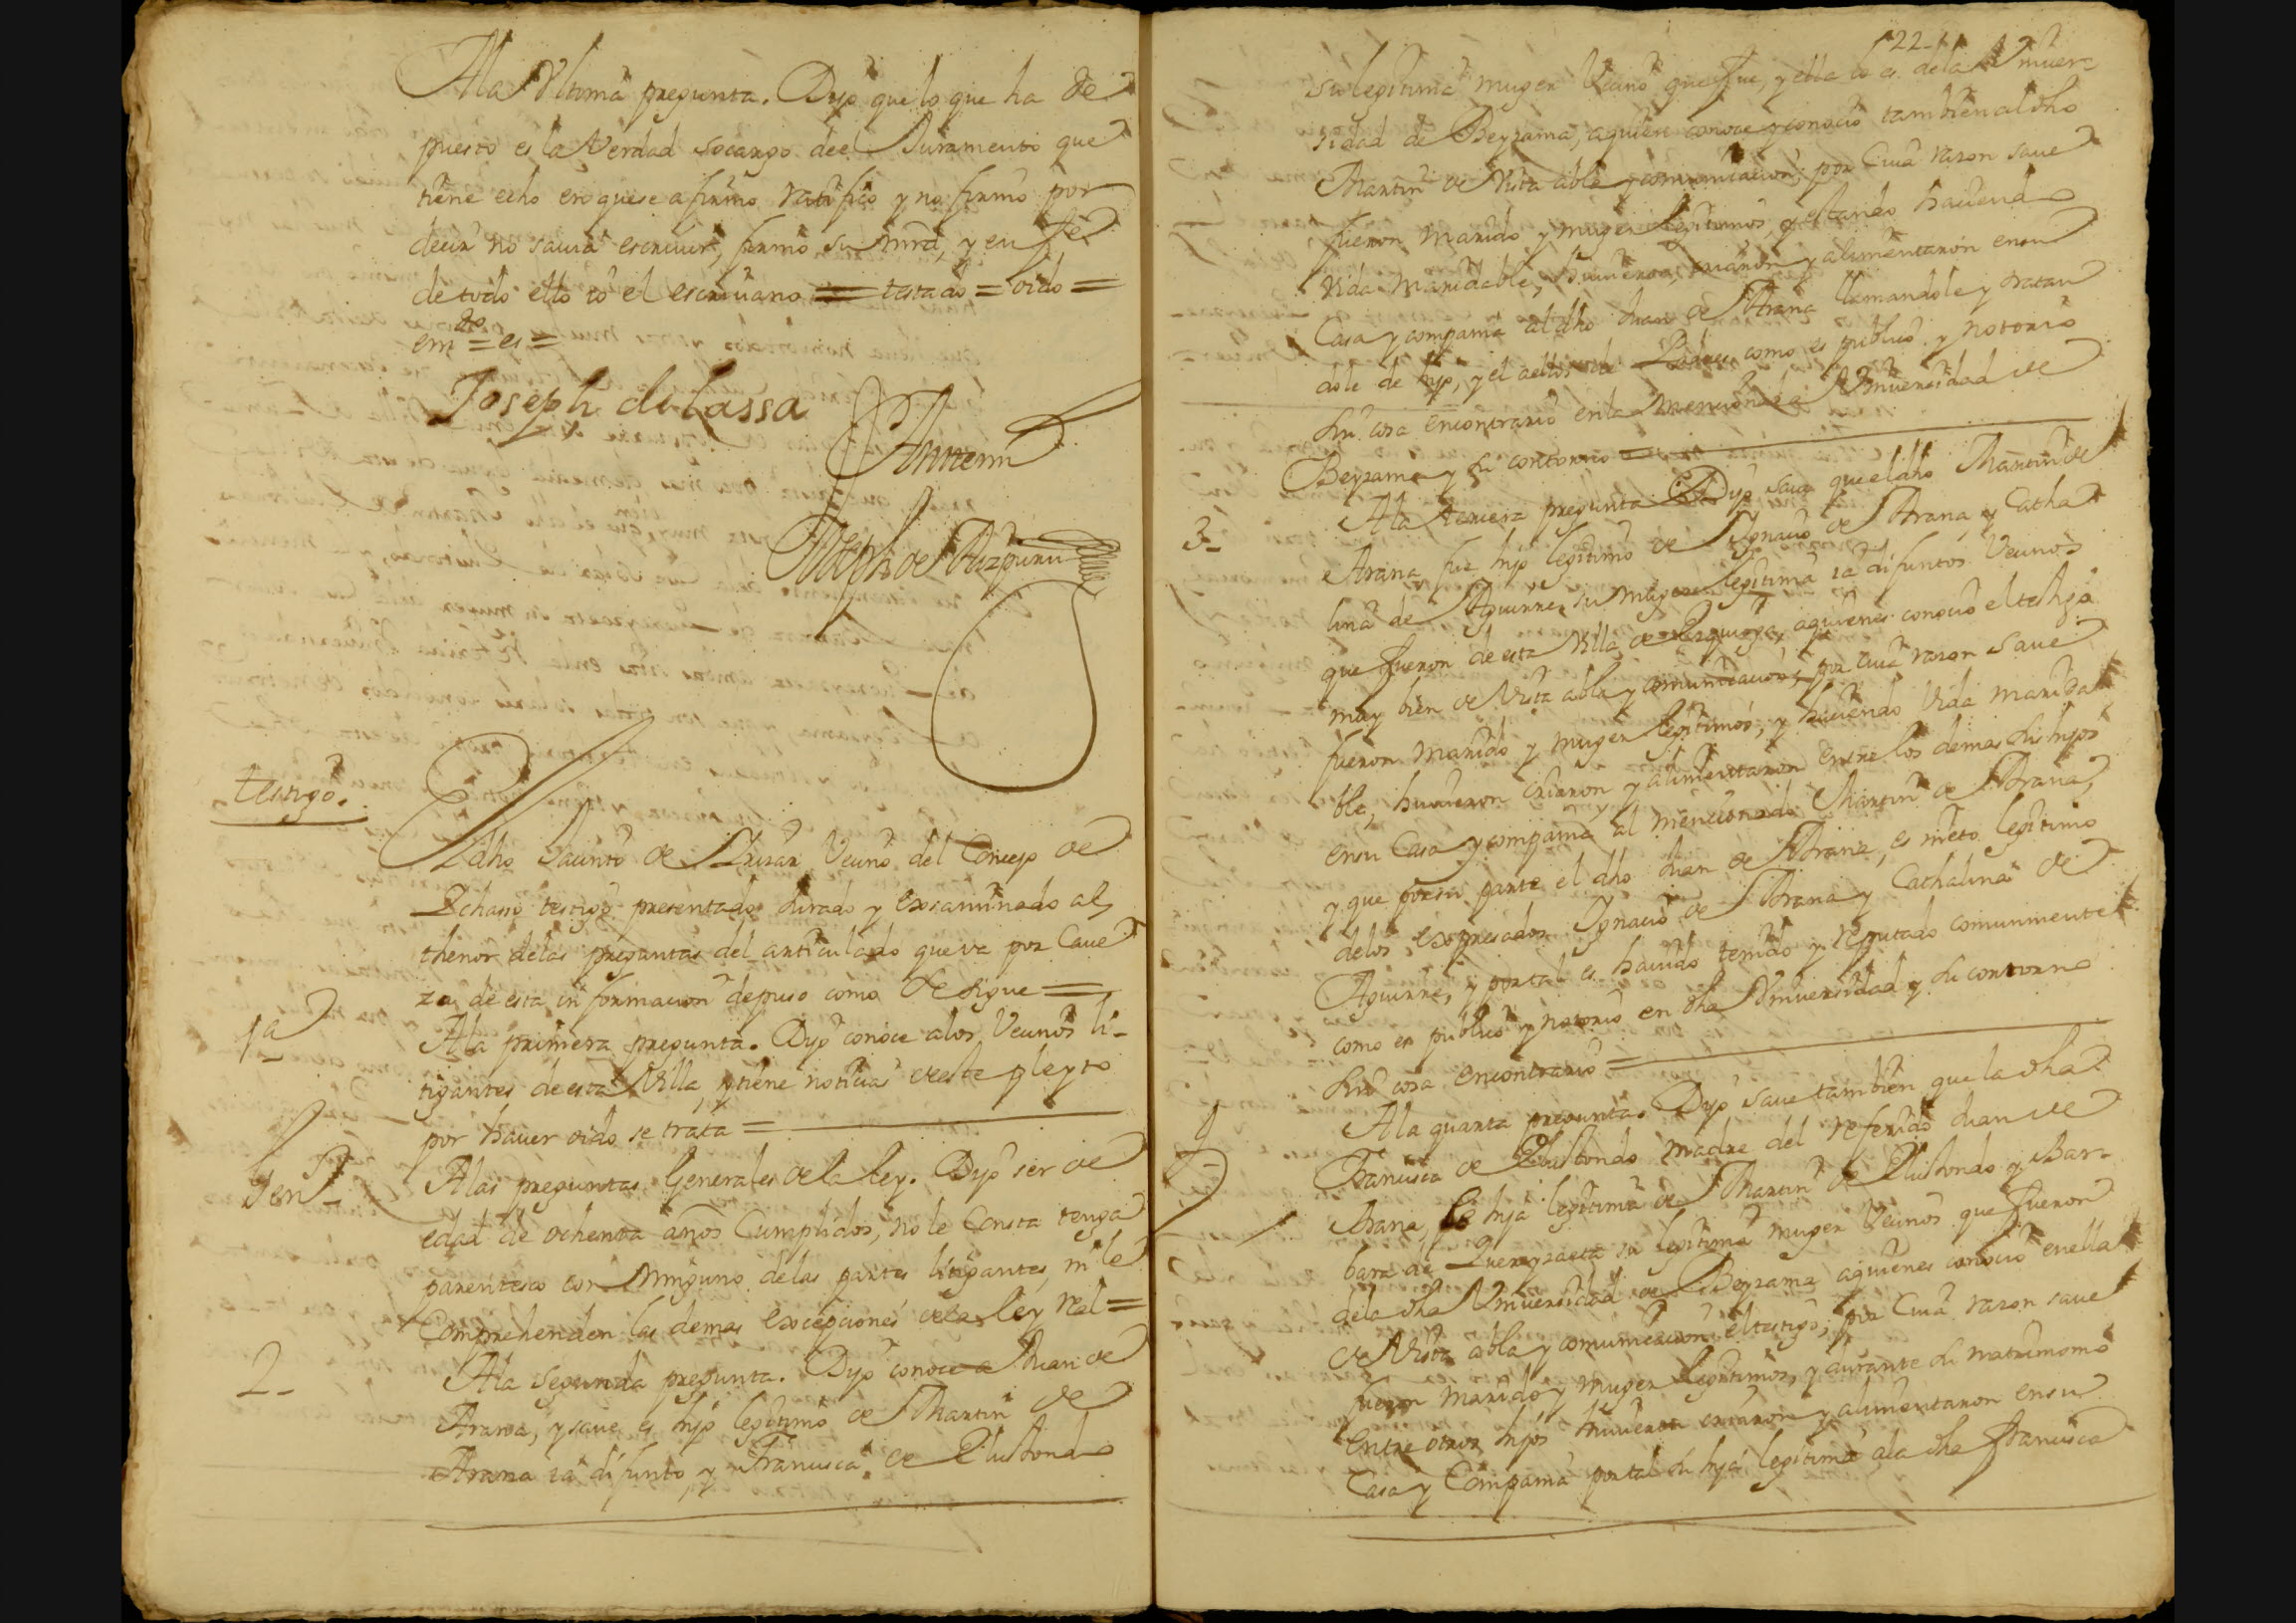 Ala Vltima pregunta. Dijo que lo que ha de
puesto es la Verdad socargo del Juramento que
tiene echo en quese afirmo ratifico y no firmo por
decir no sauia escriuir, firmo su mrd, y en fee
de todo ello io el escriuano = testado = oido =
em.do = es =
Joseph de Lassa
Antemi
Joseph de Aizpuru
testigo.
El dho Jacinto de Vecino del Concejo de
testigo presentado Jurado y exsaminado al
thenor delas preguntas del articulado queva por Caue
za de esta informacion depuso como se sigue =
1ª
Ala primera pregunta. Dijo conoce alos Vecinos li-
tigantes de esta Villa, y tiene noticia deeste pleyto
por hauer oido se trata =
Gen.l
Alas preguntas Generales dela ley. Dijo ser de
edad de ochenta años Cumplidos, no le Consta tenga
parentesco con Ninguno delas partes litigantes, ni le
Comprehenden las demas excepciones dela ley real =
2-
Ala segunda pregunta. Dijo conoce a Juan de
Arana, y saue es hijo legitimo de Martin de
Arana ia difunto, y Francisca de Elustondo
122-
su legitima muger Vecino que fue, y ella lo es dela Vniuer-
sidad de Beyzama, aquien conoce y conocio tambien al dho
Martin de Vista abla y comunicacion, por Cuia razon saue
fueron Marido y muger legitimos, y estando haciendo
Vida Maridable, huuieron, criaron y alimentaron ensu
Casa y compania al dho Juan de Arana llamandole y tratan
dole de hijo, y el aellos de Padres como es publico y notorio
sin cosa encontrario enla mencionada Vniuersidad de
Beyzama y su contorno =
3-
Ala tercera pregunta Dijo saue que el dho Martin de
Arana fue hijo legitimo de Ygnacio de Arana, y Catha
lina de Aguirre, su muger legitima ia difuntos Vecinos
que fueron de esta Villa de Ezquioga, aquienes conocio el testigo
muy bien de Vista abla y comunicacion, por cuia razon saue
fueron Marido y muger legitimos, y haciendo Vida marida
ble, huuieron criaron y alimentaron entre los demas sus hijos
ensu Casa y compania al mencionado Martin de Arana,
y que por su parte el dho Juan de Arana, es nieto legitimo
delos expresados Ygnacio de Arana y Cathalina de
Aguirre, y por tal es hauido tenido y reputado comunmente
como es publico y notorio en dha Vniuersidad y su contorno
sin cosa encontrario =
4-
Ala quarta pregunta. Dijo saue tambien que la dha
Francisca de Elustondo madre del referido Juan de
Arana, es hija legitima de Martin de Elustondo y Bar-
bara de su legitima muger Vecinos que fueron
dela dha Vniuersidad de Beyzama aquienes conocio en ella
de Vista abla y comunicacion el testigo, por Cuia razon saue
fueron Marido y Muger legitimos, y durante su matrimonio
entre otros hijos huuieron criaron y alimentaron ensu
Casa y Compania por tal su hija legitima ala dha Francisca